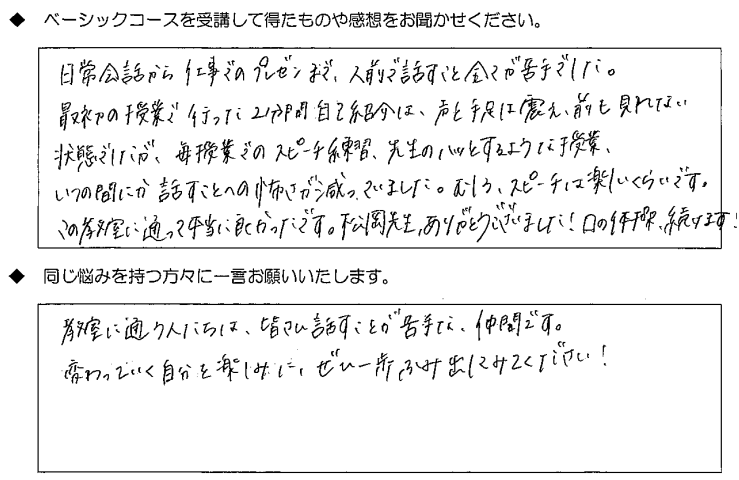 ◆ ベーシックコースを受講して得たものや感想をお聞かせください。
日常会話から仕事でのプレゼンまで、人前で話すこと全てが苦手でした。
最初の授業で行った2分間自己紹介は、声と手足は震え、前も見れない
状態でしたが、毎授業でのスピーチ練習、先生のハッとするような授業、
いつの間にか話すことへの怖さが減っていました。むしろ、スピーチは楽しいくらいです。
この教室に通って本当に良かったです。松岡先生、ありがとうございました!口の体操、続けます!
◆ 同じ悩みを持つ方々に一言お願いいたします。
教室に通う人たちは、皆さん話すことが苦手な、仲間です。
変わっていく自分を楽しみに、ぜひ一歩ふみ出してみてください!